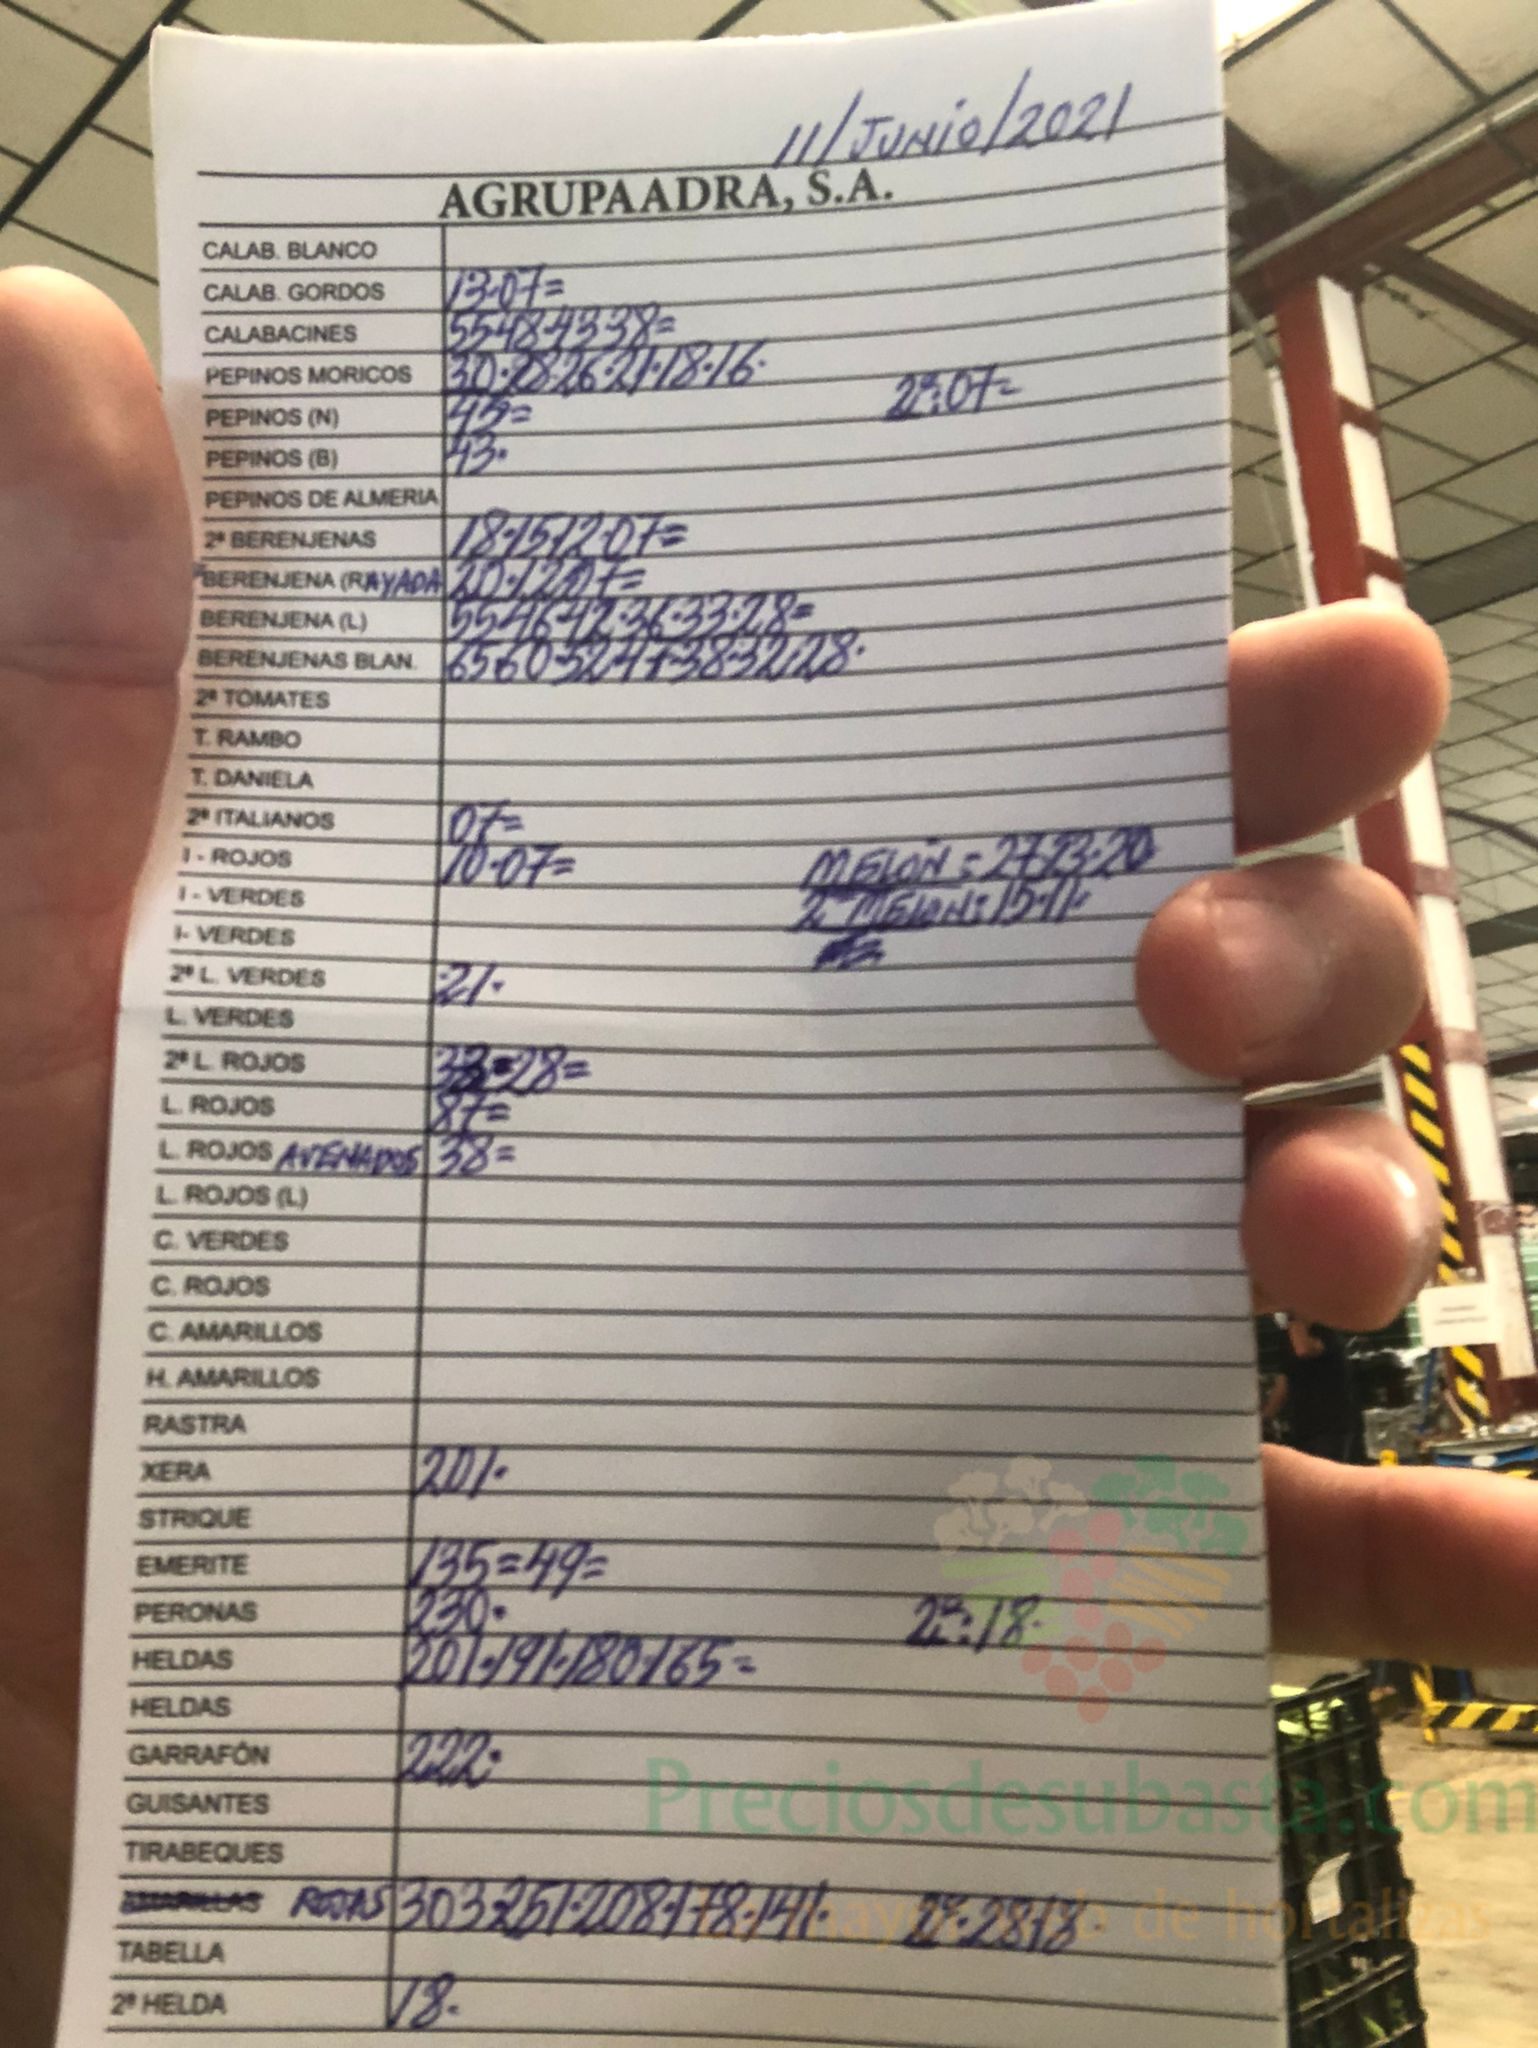 11/JUNIO/2021
AGRUPAADRA, S.A.
CALAB. BLANCO
CALAB. GORDOS 13·07=
CALABACINES 55·48·43·38=
PEPINOS MORICOS 30·28·26·21·18·16·
PEPINOS (N) 45= 2ª:07=
PEPINOS (B) 43·
PEPINOS DE ALMERIA
2ª BERENJENAS 18·15·12·07=
BERENJENA (RAYADA 20·12·07=
BERENJENA (L) 55·46·42·36·33·28=
BERENJENAS BLAN. 65·60·52·47·38·32·28·
2ª TOMATES
T. RAMBO
T. DANIELA
2ª ITALIANOS 07=
I - ROJOS 10·07= MELON: 27·23·20
I - VERDES 2ª MELON: 15·11·
I- VERDES
2ª L. VERDES 21·
L. VERDES
2ª L. ROJOS 28=
L. ROJOS 87=
L. ROJOS AVENADOS 38=
L. ROJOS (L)
C. VERDES
C. ROJOS
C. AMARILLOS
H. AMARILLOS
RASTRA
XERA 201·
STRIQUE
EMERITE 135=49=
PERONAS 230· 2ª:18·
HELDAS 201·191·180·165=
HELDAS
GARRAFÓN 222·
GUISANTES
Preciosdesubasta.com
TIRABEQUES
AMARILLAS ROJAS 303·251·208·178·141· 2ª·28·18·
de hortalizas
TABELLA
2ª HELDA 18·